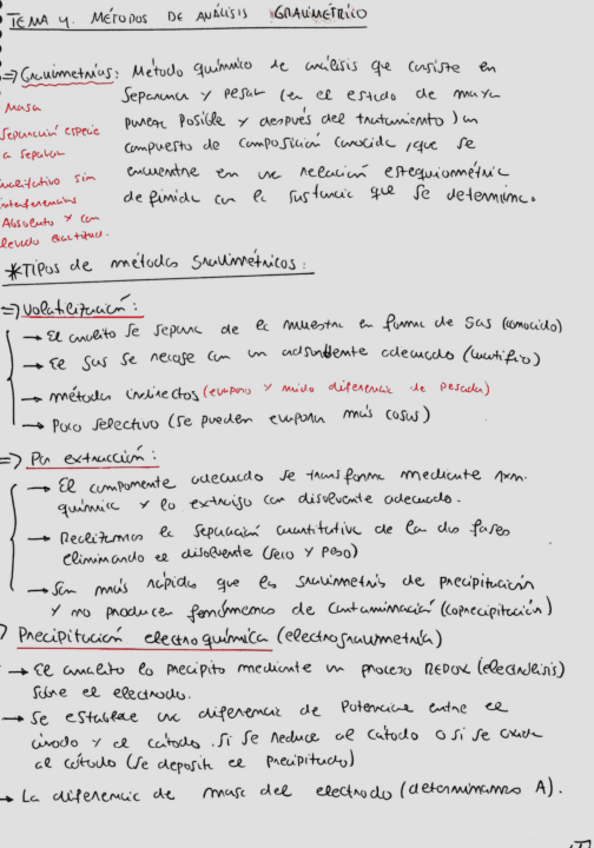 TEMA 4. MÉTODOS DE ANÁLISIS GRAVIMÉTRICO
=> Gravimetrías: Método químico de análisis que consiste en
separar y pesar (en el estado de mayor
pureza posible y después del tratamiento) un
compuesto de composición conocida, que se
encuentre en una relación estequiométrica
definida con la sustancia que se determina.
Masa
Separación especie
a separar
Cualitativo sin
interferencias
Absoluto y con
elevada exactitud.
*TIPOS de métodos gravimétricos:
=> Volatilización:
→ El analito se separa de la muestra en forma de gas (conocido)
→ El gas se recoge con un adsorbente adecuado (cuantifico)
→ métodos indirectos (evaporo y mido diferencia de pesada)
→ Poco selectivo (se pueden evaporar más cosas)
=> Por extracción:
→ El componente adecuado se transforma mediante rxn.
química y lo extraigo con disolvente adecuado.
→ Realizamos la separación cuantitativa de las dos fases
eliminando el disolvente (seco y peso)
→ Son más rápidas que las gravimetrías de precipitación
y no producen fenómenos de contaminación (coprecipitación)
Precipitación electroquímica (electrogravimetría)
→ El analito lo precipito mediante un proceso REDOX (electrólisis)
sobre el electrodo.
→ Se establece una diferencia de potencial entre el
ánodo y el cátodo. Si se reduce al cátodo o si se oxida
al cátodo (se deposita el precipitado)
→ La diferencia de masa del electrodo (determinamos A).